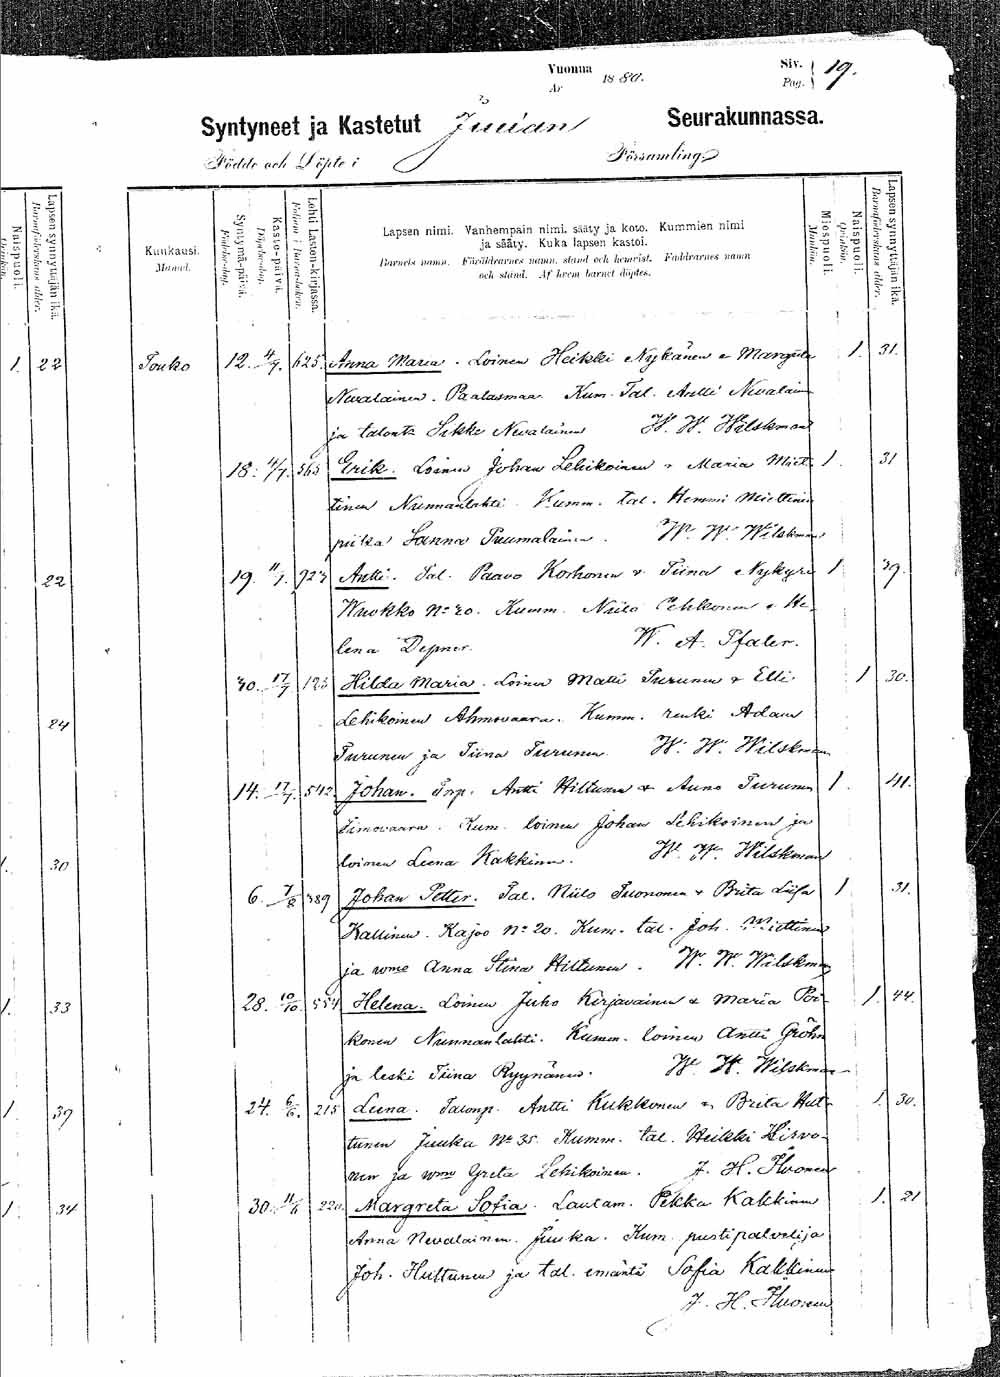 Vuonna 1880. Siv. 19.
År Pag.
Syntyneet ja Kastetut Juuan Seurakunnassa.
Födde och Döpte i Församling
Naispuoli. Lapsen synnyttäjän ikä.
Qvinkön. Barnaföderskans ålder.
Kuukausi.
Månad.
Syntymä-päivä.
Födelse-dag.
Kaste-päivä.
Döpelse-dag.
Lehti Lasten-kirjassa.
Folium i Barnaboken.
Lapsen nimi. Vanhempain nimi, sääty ja koto. Kummien nimi
ja sääty. Kuka lapsen kastoi.
Barnets namn. Föräldrarnes namn, stånd och hemvist. Faddrarnes namn
och stånd. Af hvem barnet döptes.
Miespuoli.
Mankön.
Naispuoli.
Qvinkön.
Lapsen synnyttäjän ikä.
Barnaföderskans ålder.
1. 22 Touko 12. 4/7. 625. Anna Maria. Loinen Heikki Nykänen & Margreta 1. 31.
Nevalainen. Paalasmaa. Kum. Tal. Antti Nevalain
ja talont. Nevalainen W. W. Wilskman
18. 4/7. 565 Erik. Loinen Johan Lehikoinen & Maria Miet- 1. 31
tinen Nunnanlahti. Kumm. tal. Hemmi Miettinen
piika Sanna Puumalainen. W. W. Wilskman
22 19. 11/7. 723 Antti. Tal. Paavo Korhonen & Tiina Nykyri 1 39.
Wuokko No 20. Kumm. Niilo & He-
lena W. A. Pfaler.
30. 17/7 123 Hilda Maria. Loinen Matti Turunen & Elli 1 30.
24 Lehikoinen Ahmovaara. Kumm. renki Adam
Turunen ja Tiina Turunen W. W. Wilskman
14. 17/7. 542 Johan. Antti Hiltunen & Anna Turunen 1. 41.
Timovaara. Kum. loinen Johan Lehikoinen ja
1. 30 loinen Leena Kakkinen. W. W. Wilskman
6. 7/8 389 Johan Petter. Tal. Niilo Tuononen & Brita Liisa 1. 31.
Kallinen. Kajoo No 20. Kum. tal. Joh. Miettinen
ja wmo Anna Stina Hiltunen. W. W. Wilskman
1. 33 28. 10/10. 554 Helena. Loinen Juho Kirjavainen & Maria Poi- 1. 44.
konen Nunnanlahti. Kumm. loinen Antti Gröhn
ja leski Tiina Ryynänen. W. W. Wilskman
1. 39 24. 6/6. 215 Leena. Talonp. Antti Kukkonen & Brita Hut- 1. 30.
tunen Juuka No 35. Kumm. tal. Heikki Hirvo-
nen ja wmo Greta Lehikoinen. J. H. Thvonen
1. 34 30. 11/6 220. Margreta Sofia. Lautam. Pekka Kakkinen 1. 21
Anna Nevalainen. Juuka. Kum. postipalvelija
Joh. Huttunen ja tal. emäntä Sofia Kakkinen
J. H. Thvonen